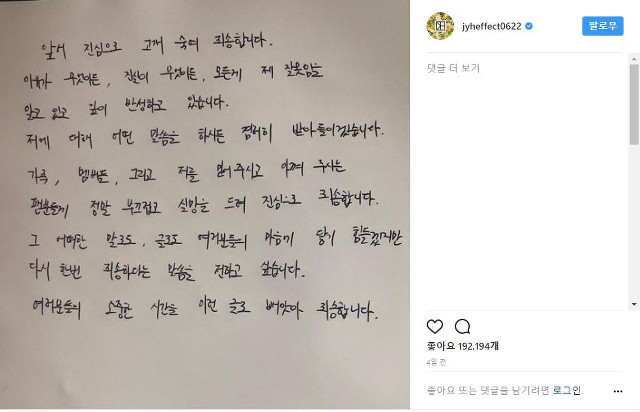 앞서 진심으로 고개 숙여 죄송합니다.
이유가 무엇이든, 진실이 무엇이든, 모든게 제 잘못임을
알고 있고 깊이 반성하고 있습니다.
저에 대해 어떤 말씀을 하시든 겸허히 받아들이겠습니다.
가족, 멤버들, 그리고 저를 믿어주시고 아껴 주시는
팬분들께 정말 부끄럽고 실망을 드려 진심으로 죄송합니다.
그 어떠한 말로도, 글로도 여러분들의 마음이 닿기 힘들겠지만
다시 한번 죄송하다는 말씀을 전하고 싶습니다.
여러분들의 소중한 시간을 이런 글로 빼앗아 죄송합니다.
jyheffect0622
팔로우
댓글 더 보기
좋아요 192,194개
4일 전
좋아요 또는 댓글을 남기려면 로그인.